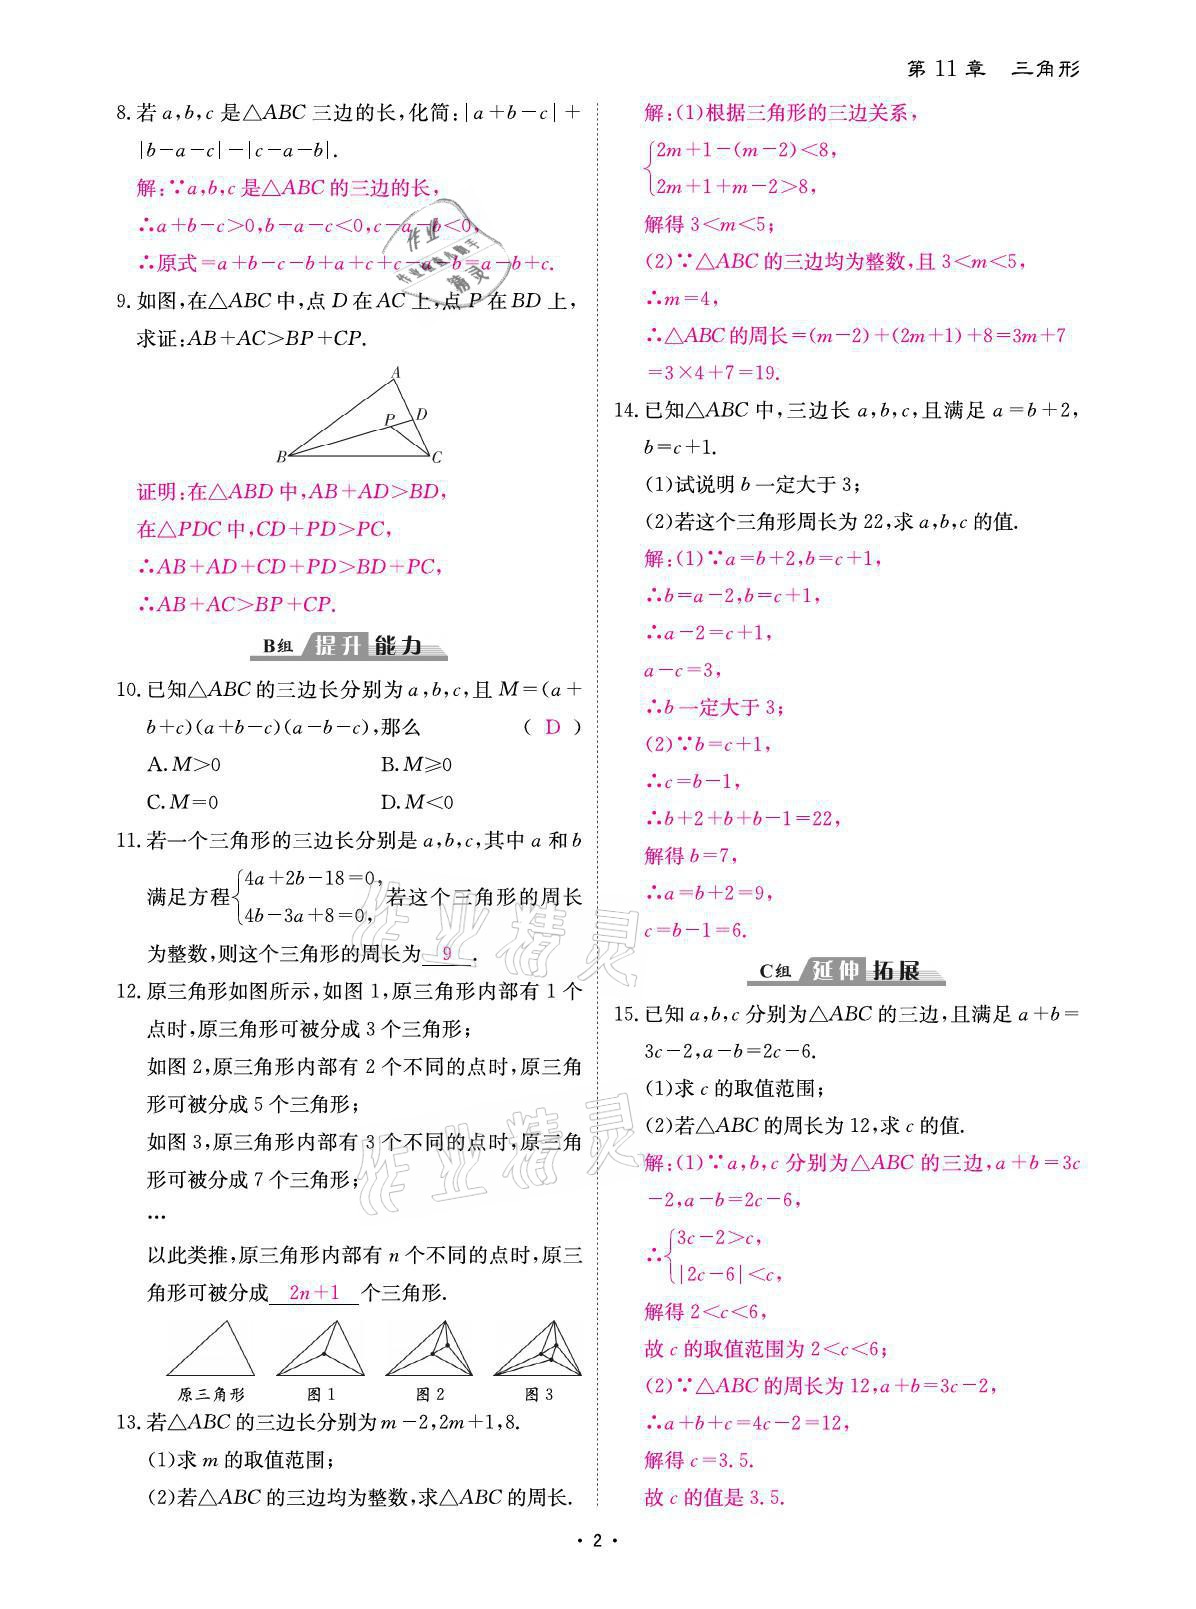 第 11 章　三角形
8. 若 a,b,c 是△ABC 三边的长,化简:|a+b-c|+
|b-a-c|-|c-a-b|.
解:∵a,b,c 是△ABC 的三边的长,
∴a+b-c>0,b-a-c<0,c-a-b<0,
∴原式=a+b-c-b+a+c+c-a-b=a-b+c.
9. 如图,在△ABC 中,点 D 在 AC 上,点 P 在 BD 上,
求证:AB+AC>BP+CP.
A
D
P
B
C
证明:在△ABD 中,AB+AD>BD,
在△PDC 中,CD+PD>PC,
∴AB+AD+CD+PD>BD+PC,
∴AB+AC>BP+CP.
B组 提升能力
10. 已知△ABC 的三边长分别为 a,b,c,且 M=(a+
b+c)(a+b-c)(a-b-c),那么 ( D )
A. M>0 B. M⩾0
C. M=0 D. M<0
11. 若一个三角形的三边长分别是 a,b,c,其中 a 和 b
4a+2b-18=0,
满足方程{ 若这个三角形的周长
4b-3a+8=0,
为整数,则这个三角形的周长为 9 .
12. 原三角形如图所示,如图 1,原三角形内部有 1 个
点时,原三角形可被分成 3 个三角形;
如图 2,原三角形内部有 2 个不同的点时,原三角
形可被分成 5 个三角形;
如图 3,原三角形内部有 3 个不同的点时,原三角
形可被分成 7 个三角形;
…
以此类推,原三角形内部有 n 个不同的点时,原三
角形可被分成 2n+1 个三角形.
原三角形 图 1 图 2 图 3
13. 若△ABC 的三边长分别为 m-2,2m+1,8.
(1)求 m 的取值范围;
(2)若△ABC 的三边均为整数,求△ABC 的周长.
解:(1)根据三角形的三边关系,
{2m+1-(m-2)<8,
2m+1+m-2>8,
解得 3<m<5;
(2)∵△ABC 的三边均为整数,且 3<m<5,
∴m=4,
∴△ABC 的周长=(m-2)+(2m+1)+8=3m+7
=3×4+7=19.
14. 已知△ABC 中,三边长 a,b,c,且满足 a=b+2,
b=c+1.
(1)试说明 b 一定大于 3;
(2)若这个三角形周长为 22,求 a,b,c 的值.
解:(1)∵a=b+2,b=c+1,
∴b=a-2,b=c+1,
∴a-2=c+1,
a-c=3,
∴b 一定大于 3;
(2)∵b=c+1,
∴c=b-1,
∴b+2+b+b-1=22,
解得 b=7,
∴a=b+2=9,
c=b-1=6.
C组 延伸拓展
15. 已知 a,b,c 分别为△ABC 的三边,且满足 a+b=
3c-2,a-b=2c-6.
(1)求 c 的取值范围;
(2)若△ABC 的周长为 12,求 c 的值.
解:(1)∵a,b,c 分别为△ABC 的三边,a+b=3c
-2,a-b=2c-6,
∴{3c-2>c,
|2c-6|<c,
解得 2<c<6,
故 c 的取值范围为 2<c<6;
(2)∵△ABC 的周长为 12,a+b=3c-2,
∴a+b+c=4c-2=12,
解得 c=3.5.
故 c 的值是 3.5.
作业精灵
作业精灵
· 2 ·